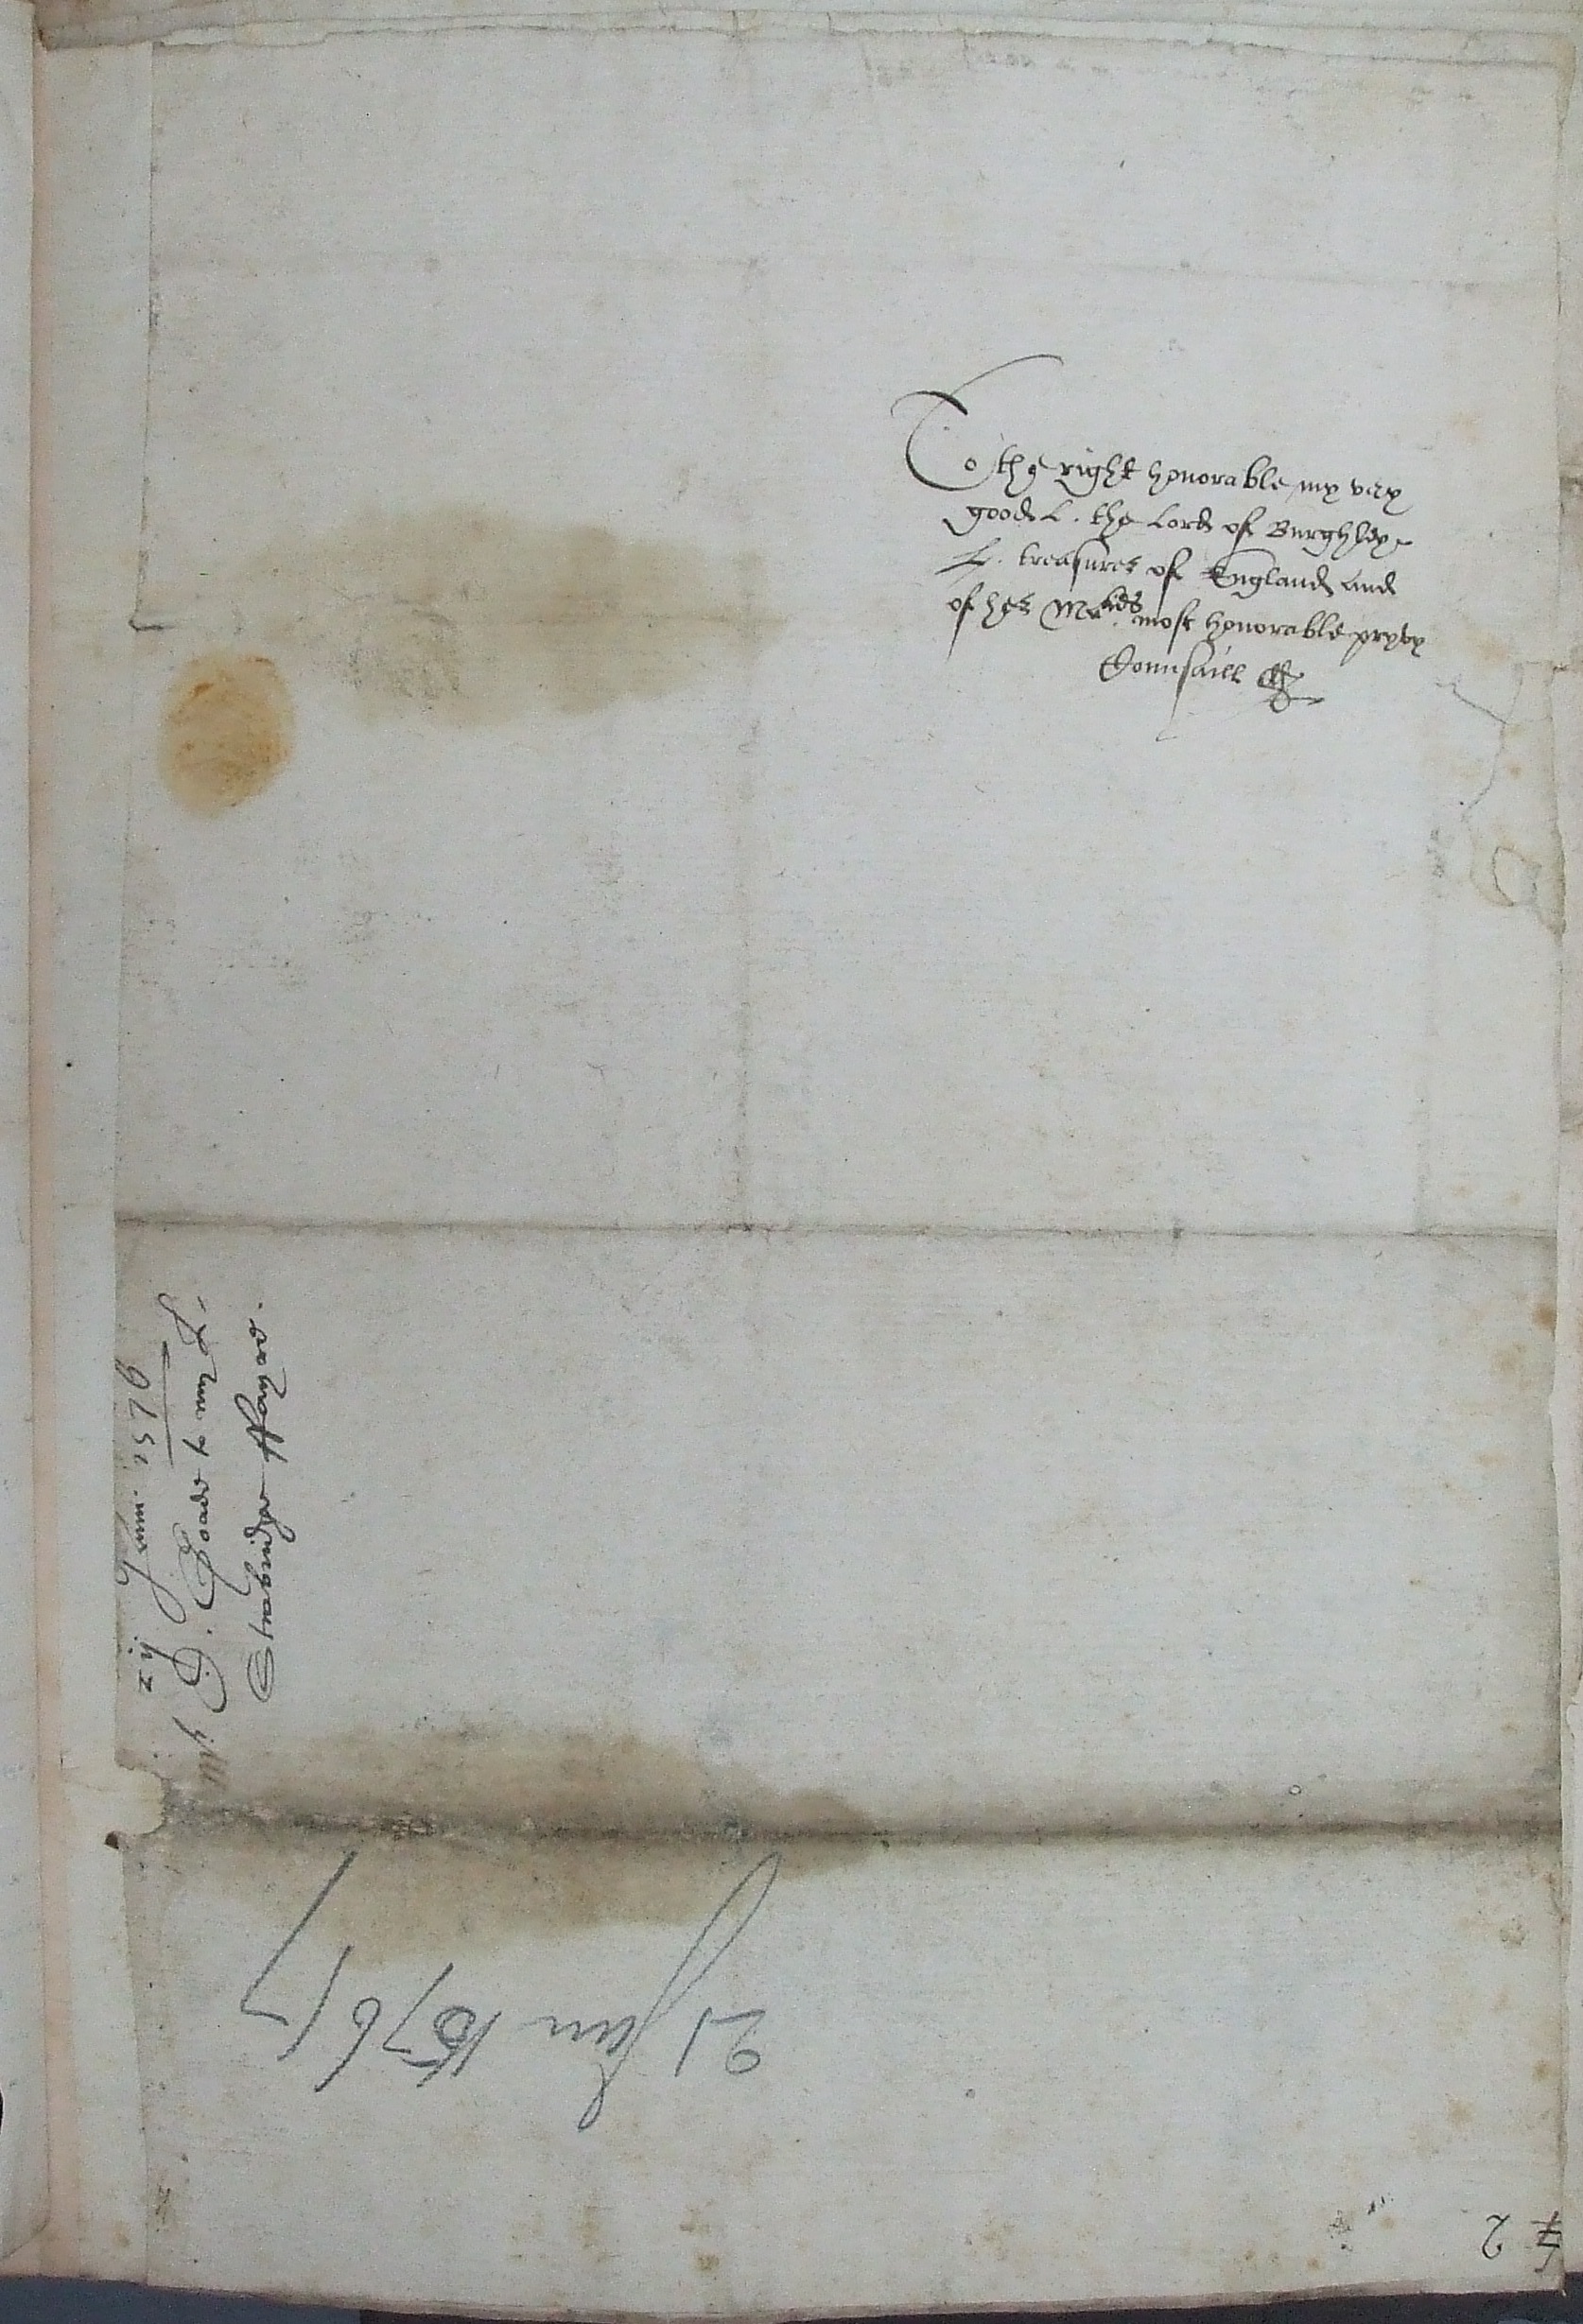 To the right honorable my very
good L. the Lord of Burghley
L. treasurer of England and
of her Ma.ties most honorable pryvy
Counsaill &c
xij Junii. 1576
D. Goade to my L.
Mr
21 Jan 1576/7
2